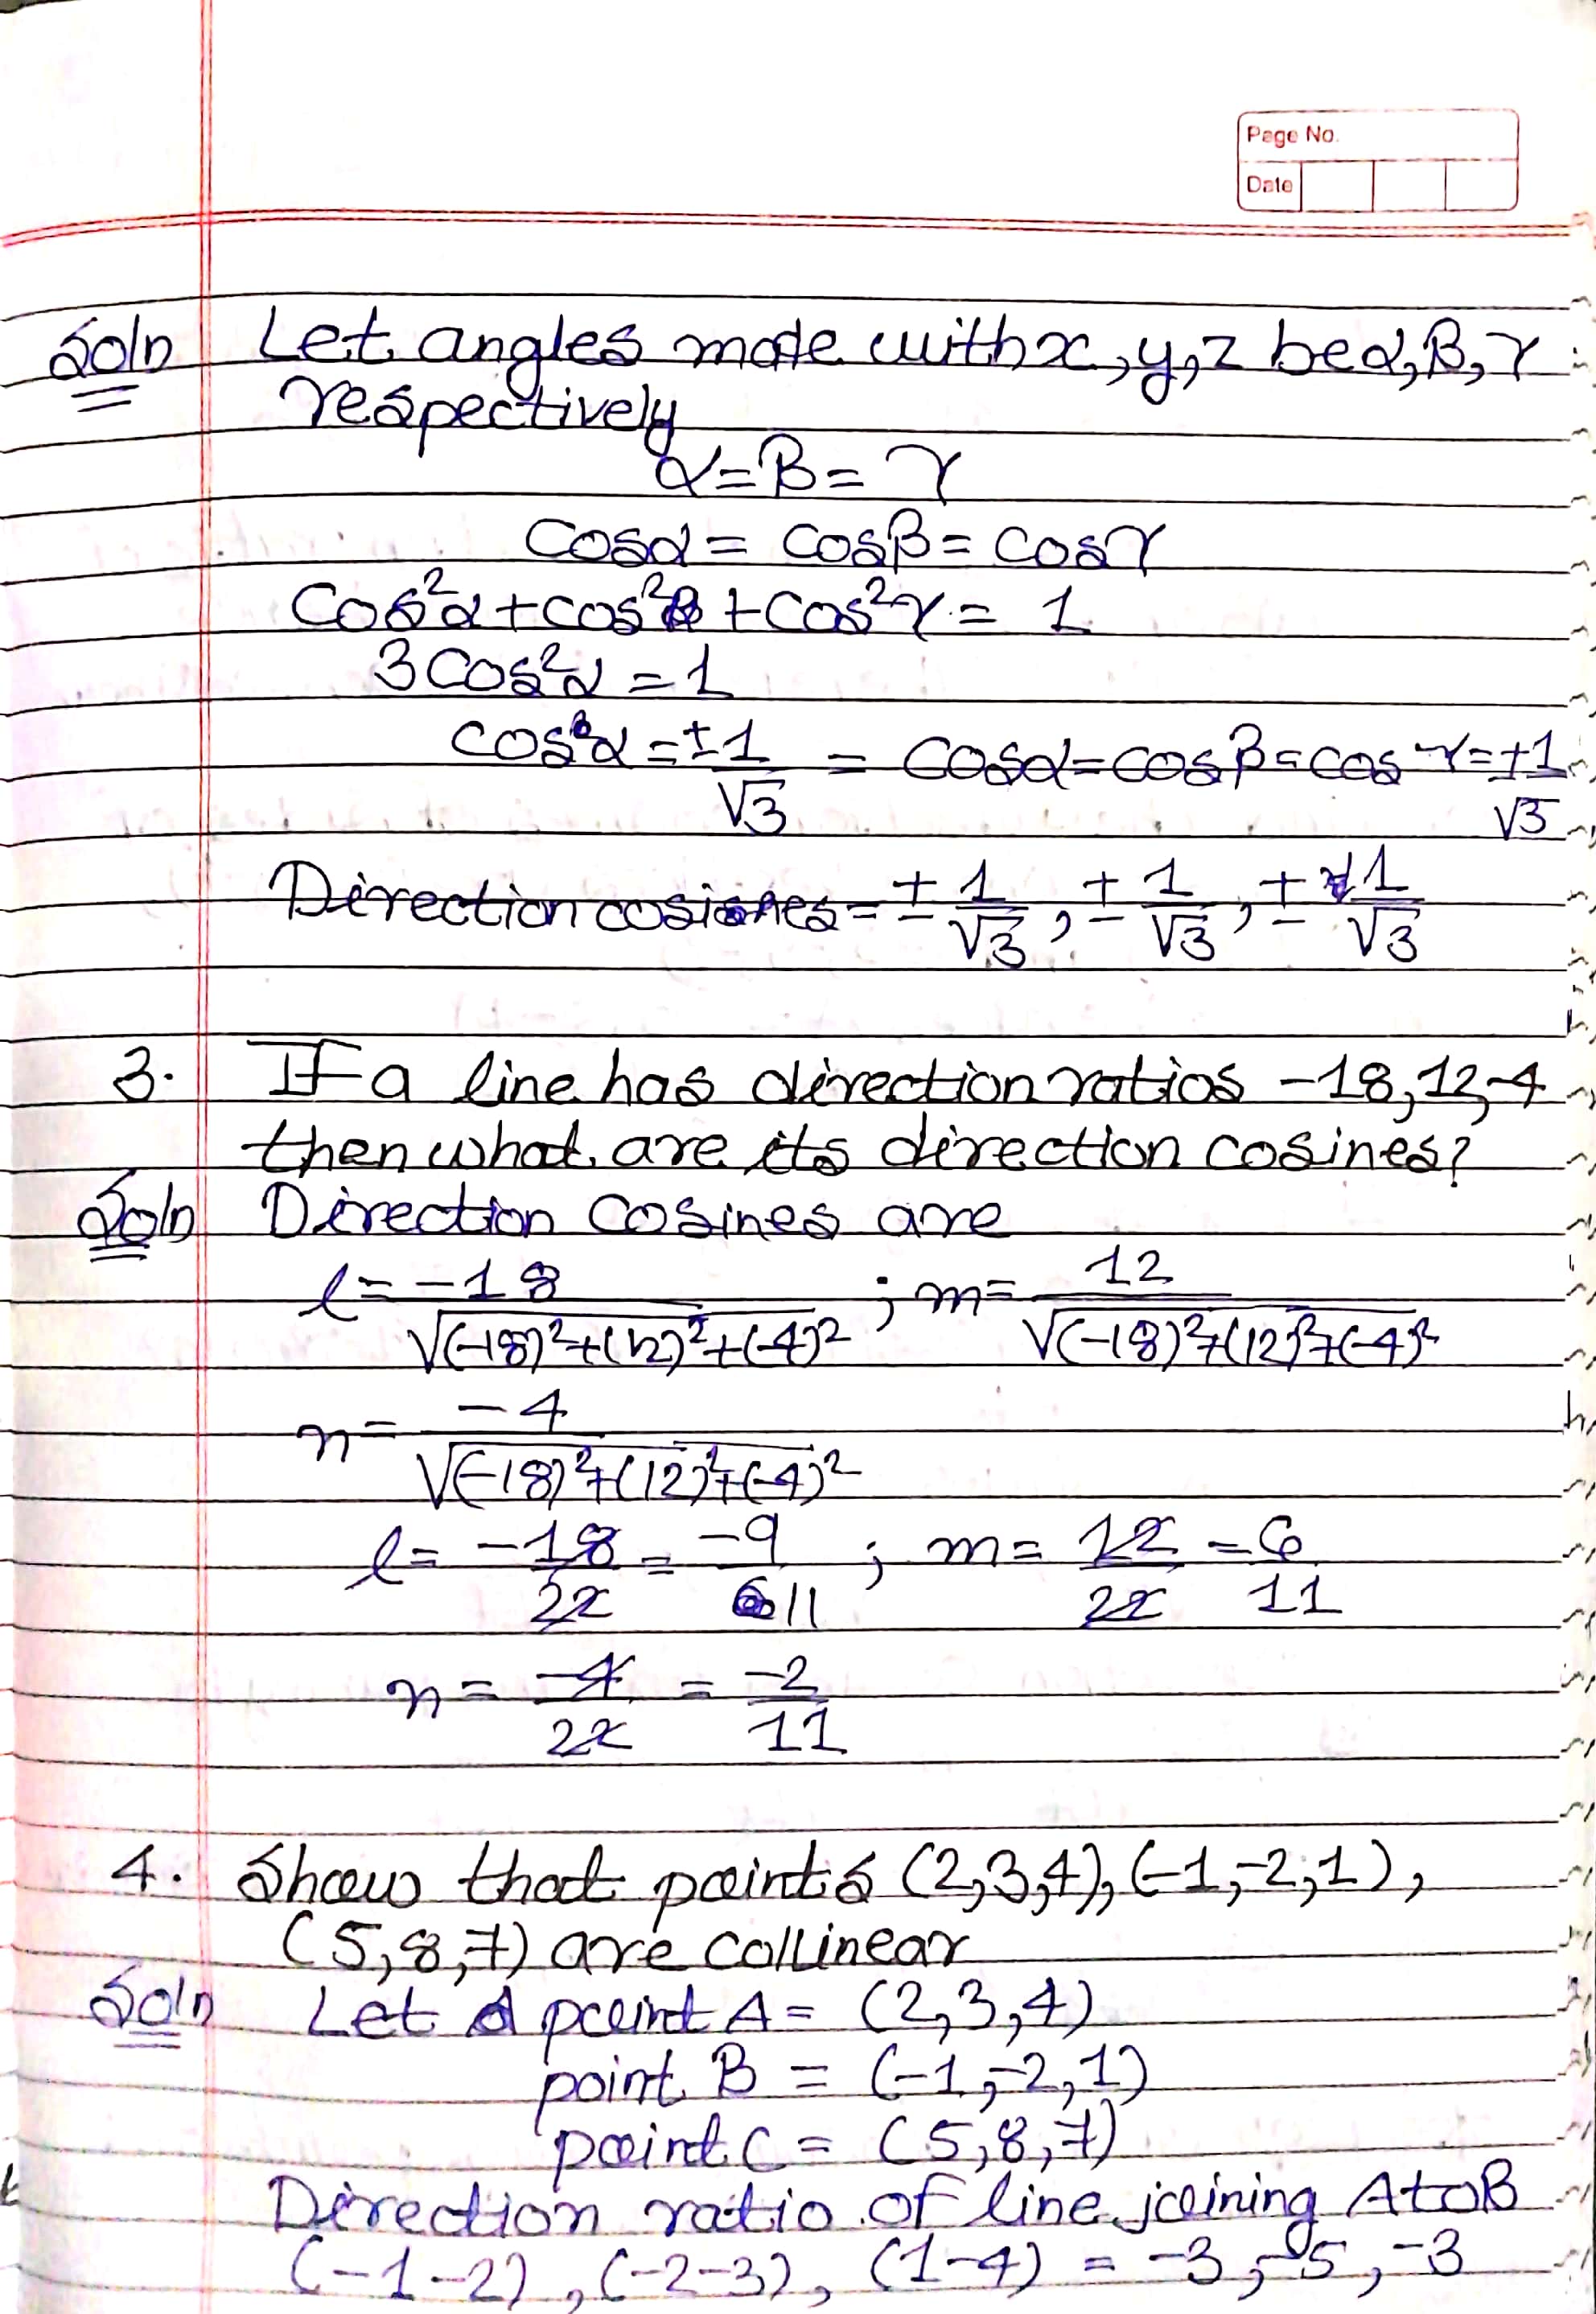 Page No.
Date
Soln Let angles made with x, y, z be α, β, γ
respectively
α = β = γ
cosα = cosβ = cosγ
Cos²α + cos²β + cos²γ = 1
3 Cos²α = 1
cosα = ±1/√3 = cosα = cosβ = cosγ = ±1/√3
Direction cosines = ± 1/√3, ± 1/√3, ± 1/√3
3. If a line has direction ratios -18, 12, -4
then what are its direction cosines?
Soln Direction Cosines are
l = -18/√(-18)²+(12)²+(-4)² ; m = 12/√(-18)²+(12)²+(-4)²
n = -4/√(-18)²+(12)²+(-4)²
l = -18/22 = -9/11 ; m = 12/22 = 6/11
n = -4/22 = -2/11
4. Show that points (2,3,4), (-1,-2,1),
(5,8,7) are collinear
Soln Let point A = (2,3,4)
point B = (-1,-2,1)
point C = (5,8,7)
Direction ratio of line joining A to B
(-1-2), (-2-3), (1-4) = -3, -5, -3